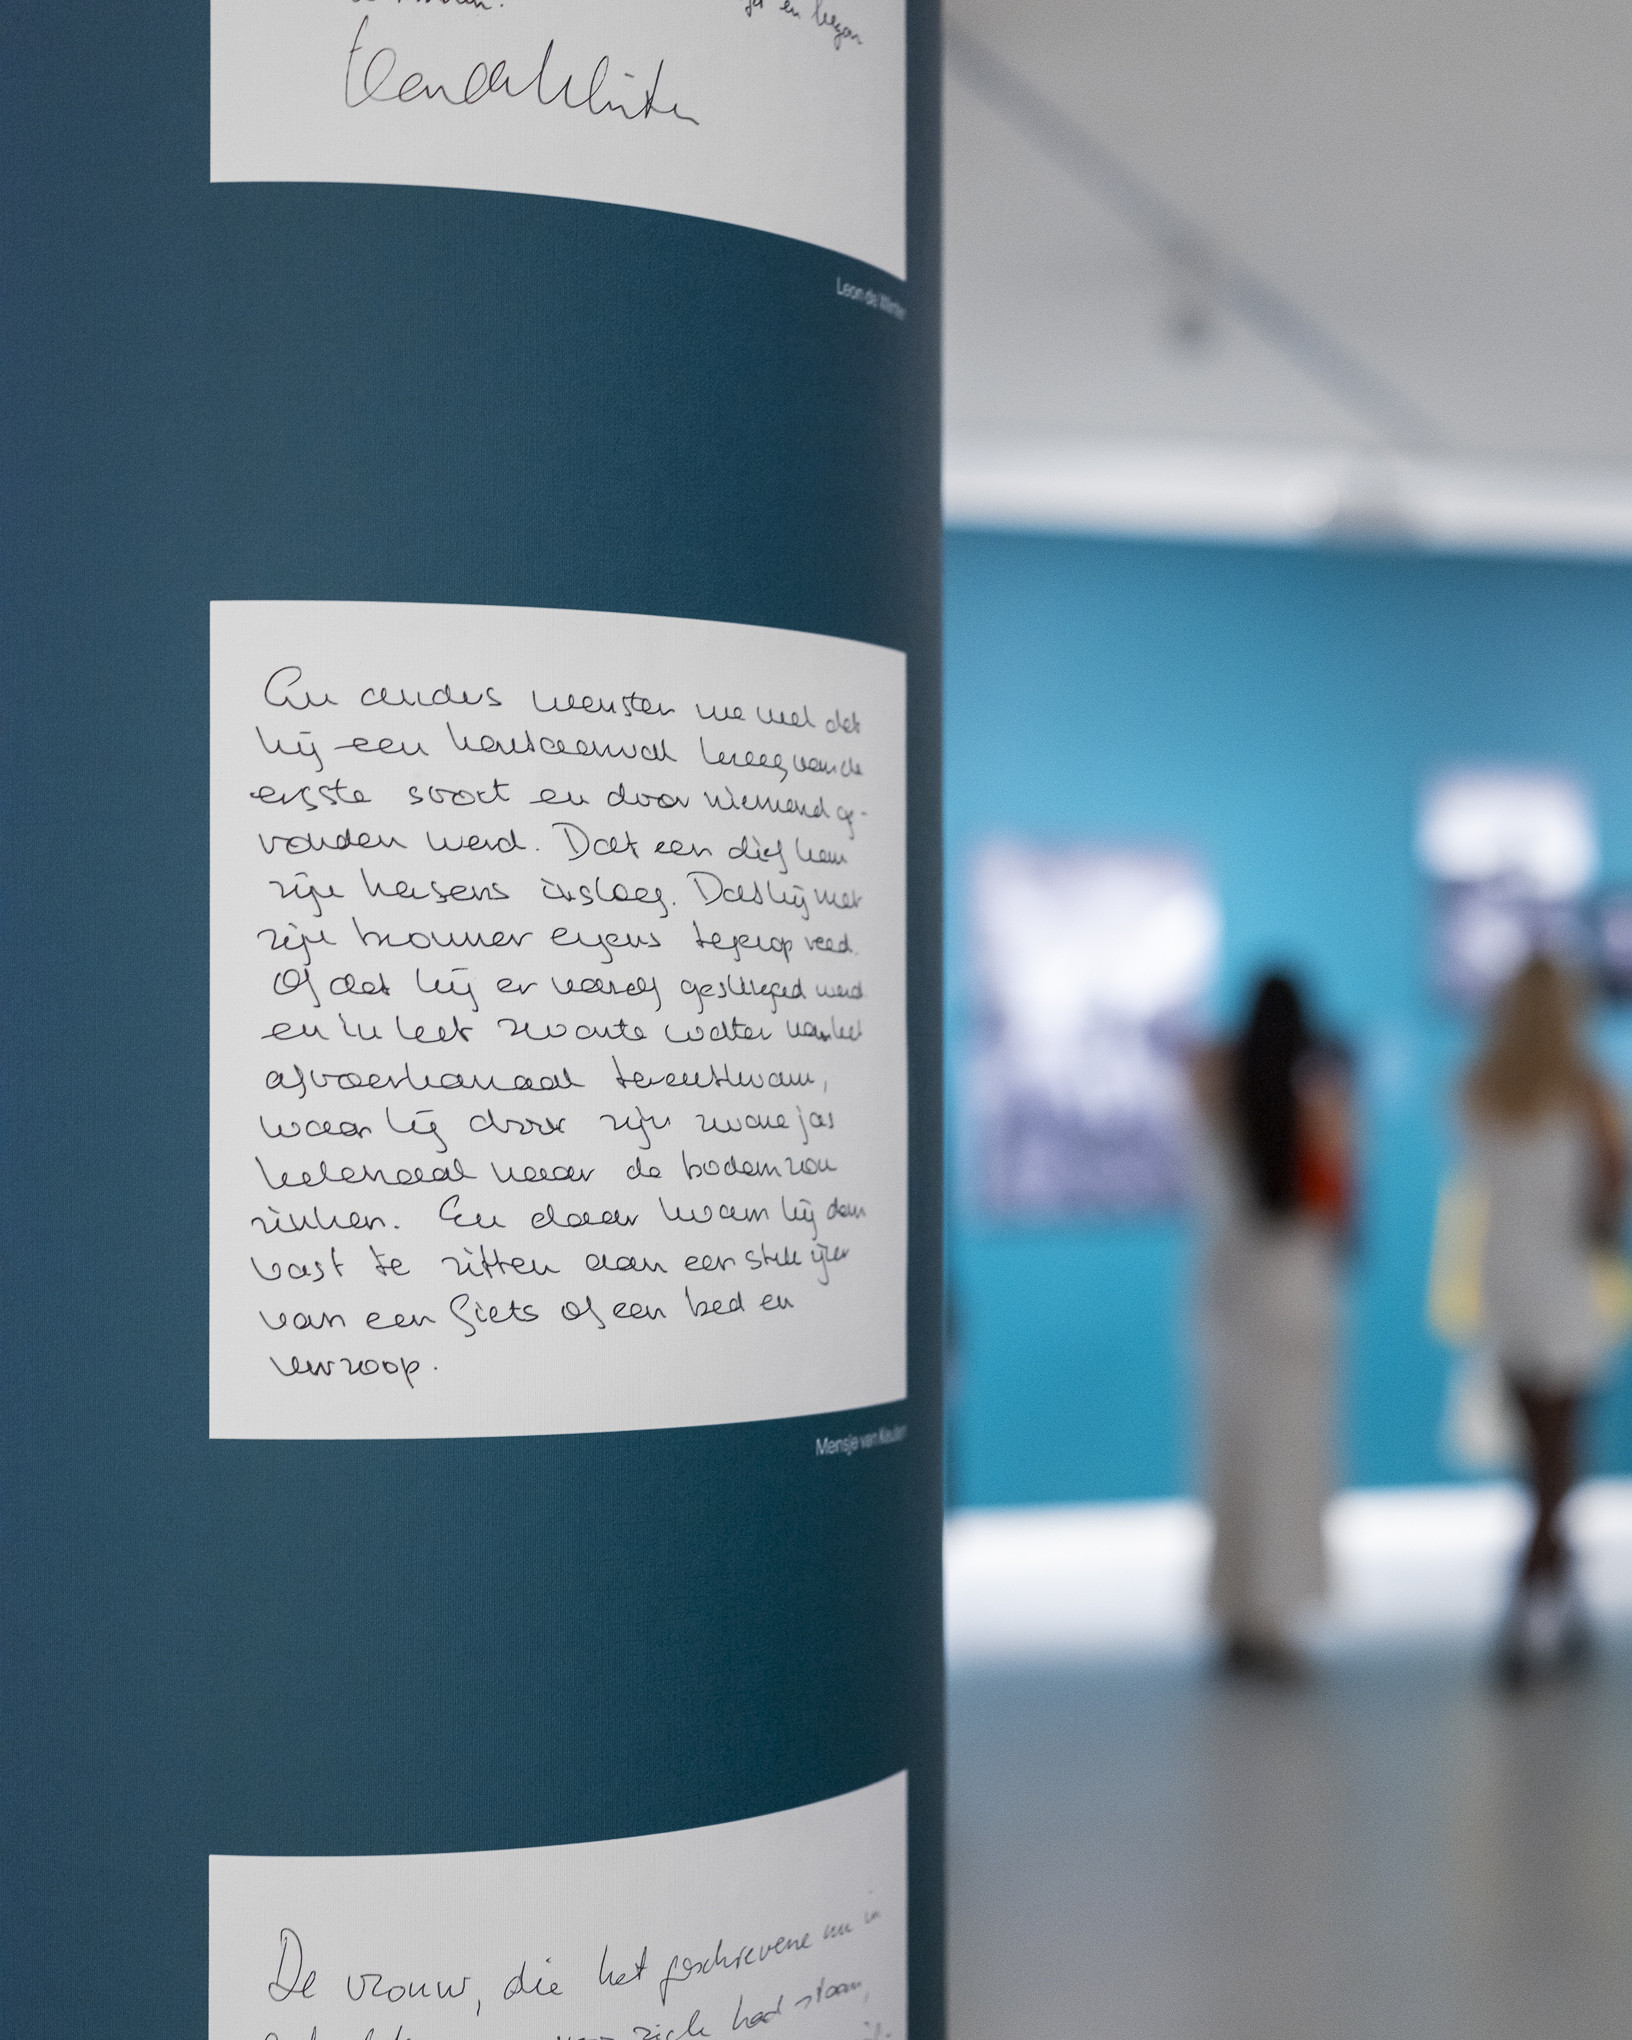 en began
Leon de Winter
Leon de Winter
En anders wenste we wel dat
hij een hartaanval kreeg van de
ergste soort en door niemand ge-
vonden werd. Dat een dief hem
zijn hersens insloeg. Dat hij met
zijn brommer ergens tegenop reed.
Of dat hij er vanaf geslingerd werd
en in het zwarte water van het
afvoerkanaal terechtkwam,
waar hij door zijn zware jas
helemaal naar de bodem zou
zinken. En daar kwam hij dan
vast te zitten aan een stuk ijzer
van een fiets of een bed en
verzoop.
Mensje van Keulen
De vrouw, die het geschrevene nu in
voor zich had staan,